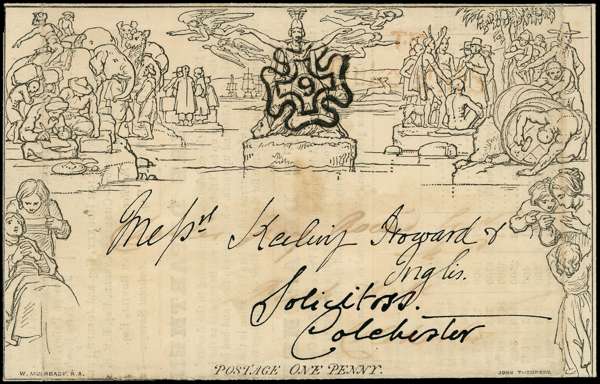 9
Messrs Keeling Howard &
Inglis.
Solicitors.
Colchester
POSTAGE ONE PENNY.
W. MULREADY. R.A.
JOHN THOMPSON.